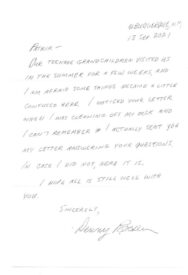 13 Sep. 2021
Patrik -
Our teenage grandchildren visited us
in the summer for a few weeks, and
I am afraid some things became a little
confused here. I noticed your letter
when I was cleaning off my desk and
I can't remember if I actually sent you
my letter answering your questions.
In case I did not, here it is.
I hope all is still well with
you.
Sincerely,